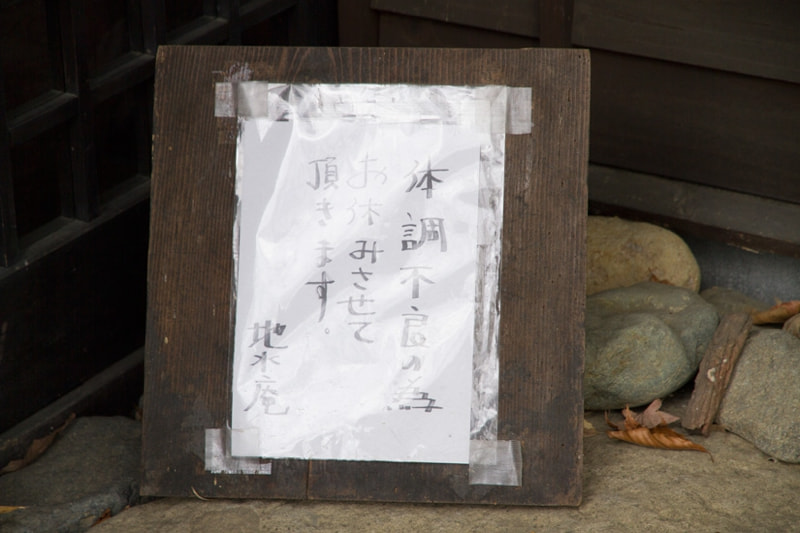 体調不良の為
お休みさせて
頂きます。
地水庵